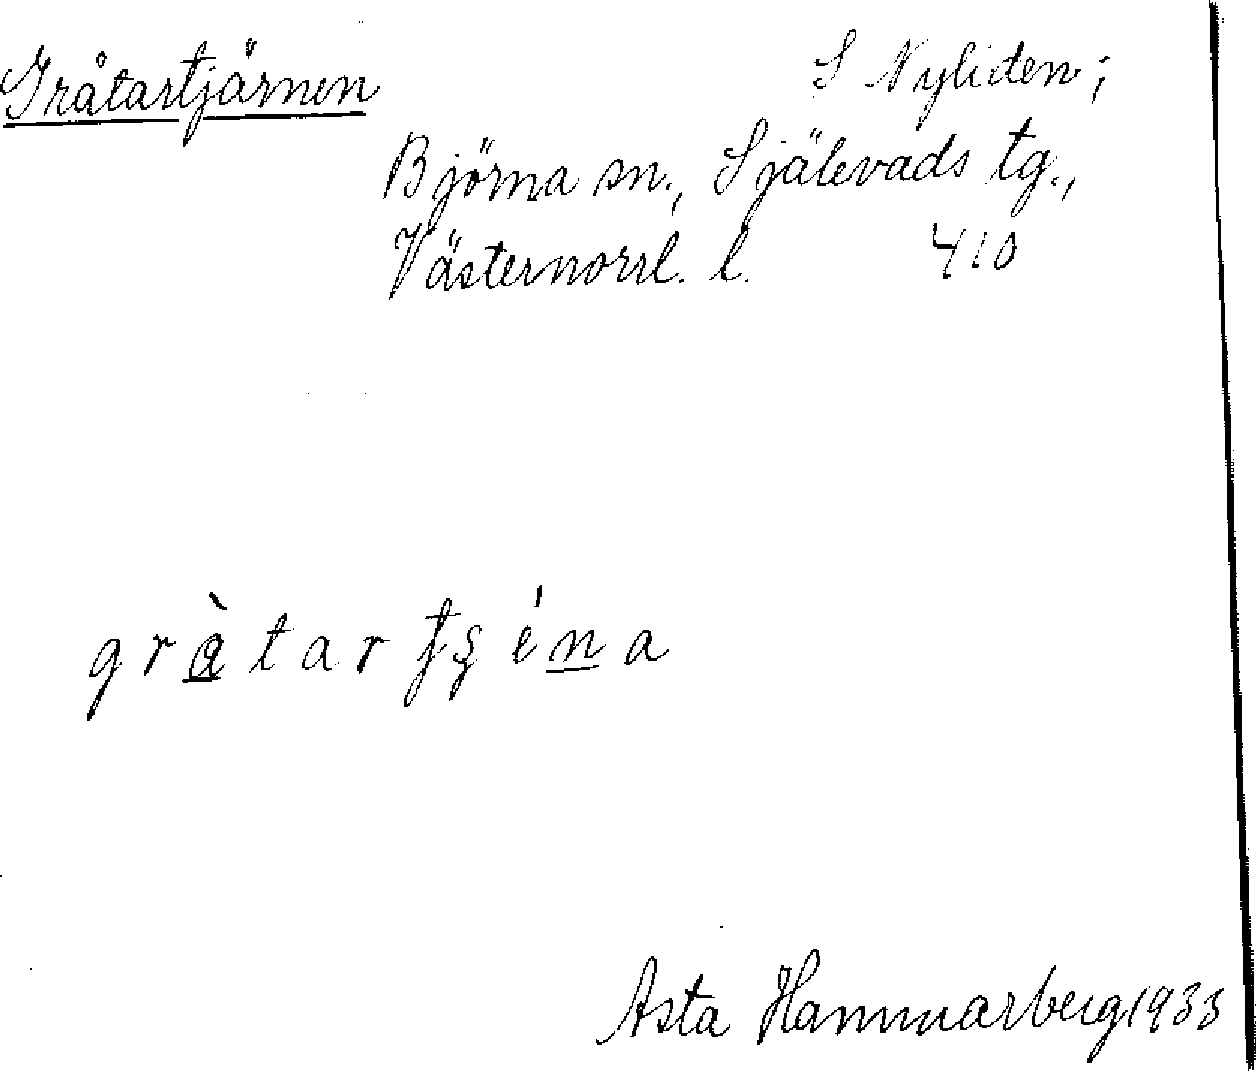 Gråtartjärnen
S Nyliden;
Björna sn., Själevads tg.,
Västernorrl. l. 410
gràtartʂéna
Asta Hammarberg 1933